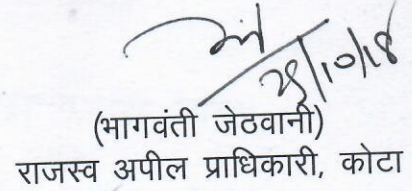 29/10/18
(भागवंती जेठवानी)
राजस्व अपील प्राधिकारी, कोटा